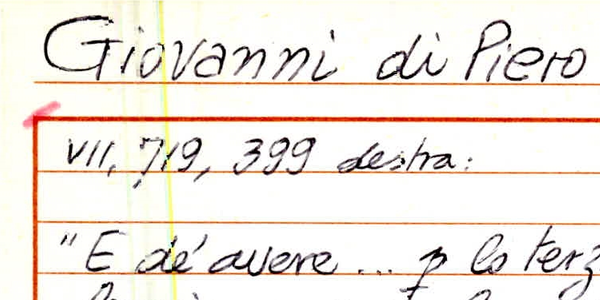 Giovanni di Piero
VII, 719, 399 destra:
"E dé avere... p lo terz